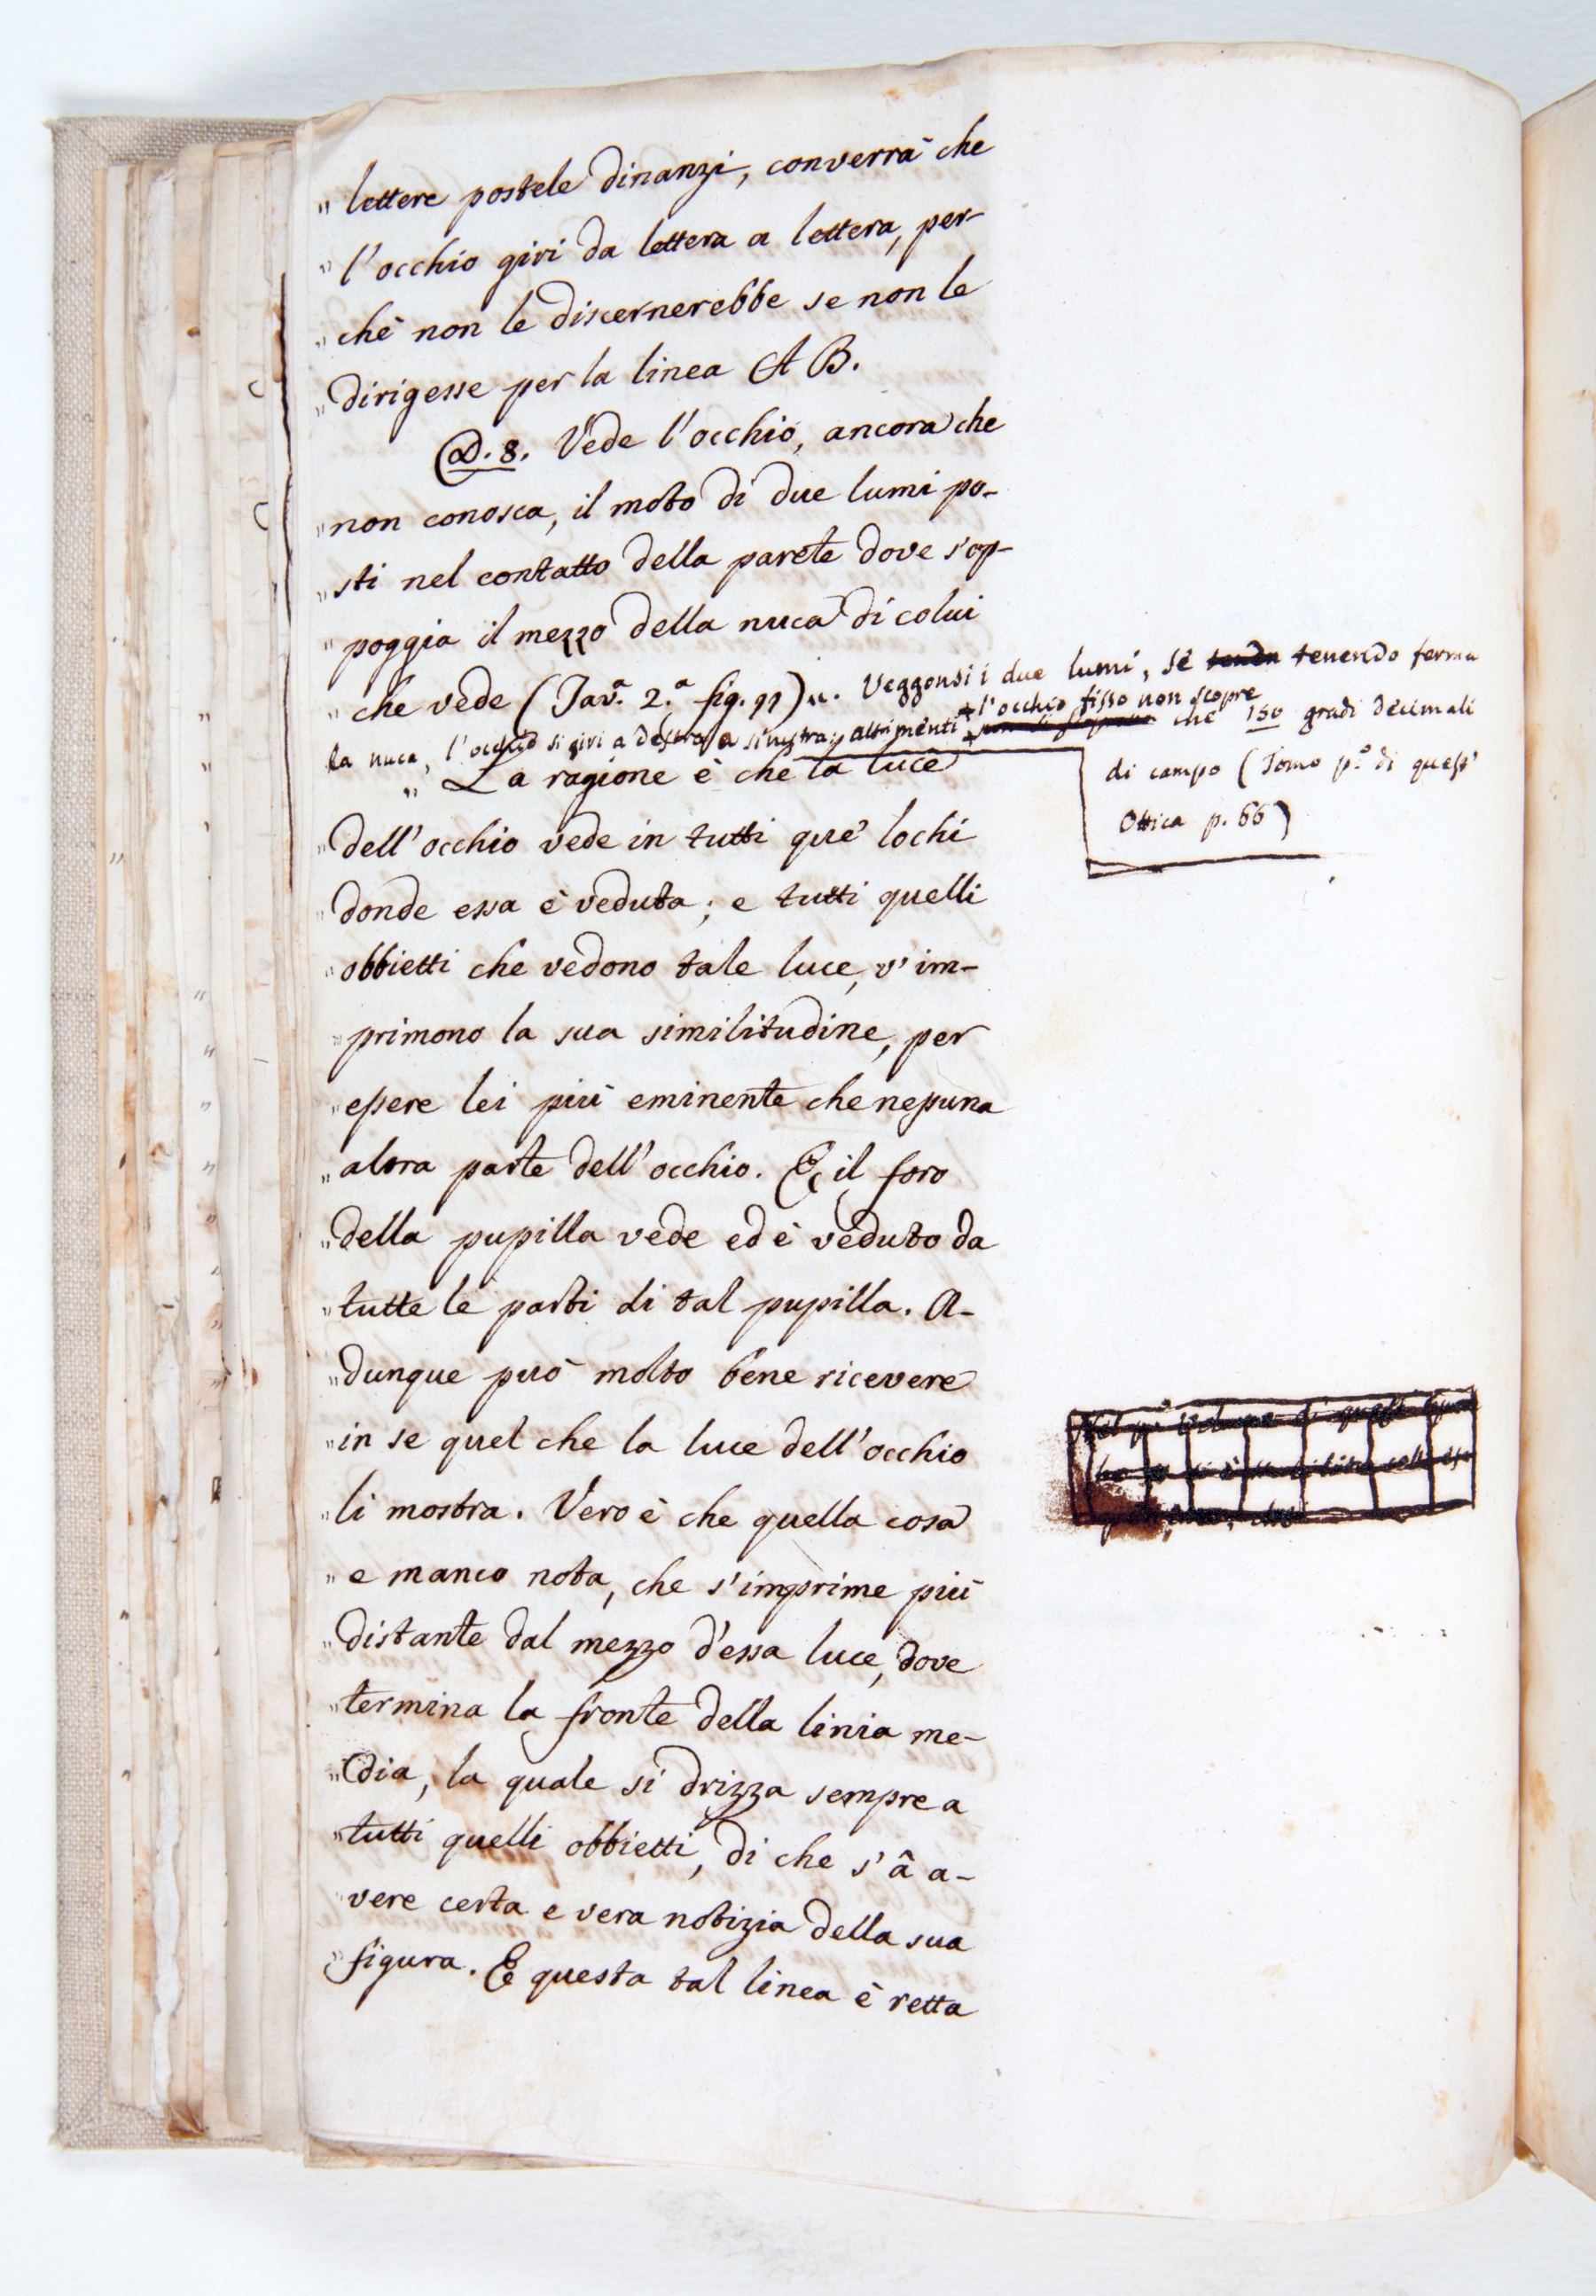 " lettere postele dinanzi, converrà che
" l'occhio giri da lettera a lettera, per-
" chè non le discernerebbe se non le
" dirigesse per la linea A B.
D. 8. Vede l'occhio, ancora che
" non conosca, il moto di due lumi po-
" sti nel contatto della parete dove s'ap-
" poggia il mezzo della nuca di colui
" che vede (Tav.ª 2.ª fig. 99) ". Veggonsi i due lumi, se tenendo ferma
la nuca, l'occhio si giri a destra, a sinistra; altrimenti l'occhio fisso non scopre che 150 gradi decimali
di campo (Tomo p.º di quest'
Ottica p. 66)
" La ragione è che la luce
" dell'occhio vede in tutti que' lochi
" donde essa è veduta; e tutti quelli
" obbietti che vedono tale luce, v'im-
" primono la sua similitudine, per
" essere lei più eminente che nessuna
" altra parte dell'occhio. E il foro
" della pupilla vede ed è veduto da
" tutte le parti di tal pupilla. A-
" dunque può molto bene ricevere
" in se quel che la luce dell'occhio
" li mostra. Vero è che quella cosa
" e manco nota, che s'imprime più
" distante dal mezzo d'essa luce, dove
" termina la fronte della linia me-
" dia, la quale si drizza sempre a
" tutti quelli obbietti, di che s'â a-
" vere certa e vera notizia della sua
" figura. E questa tal linea è retta